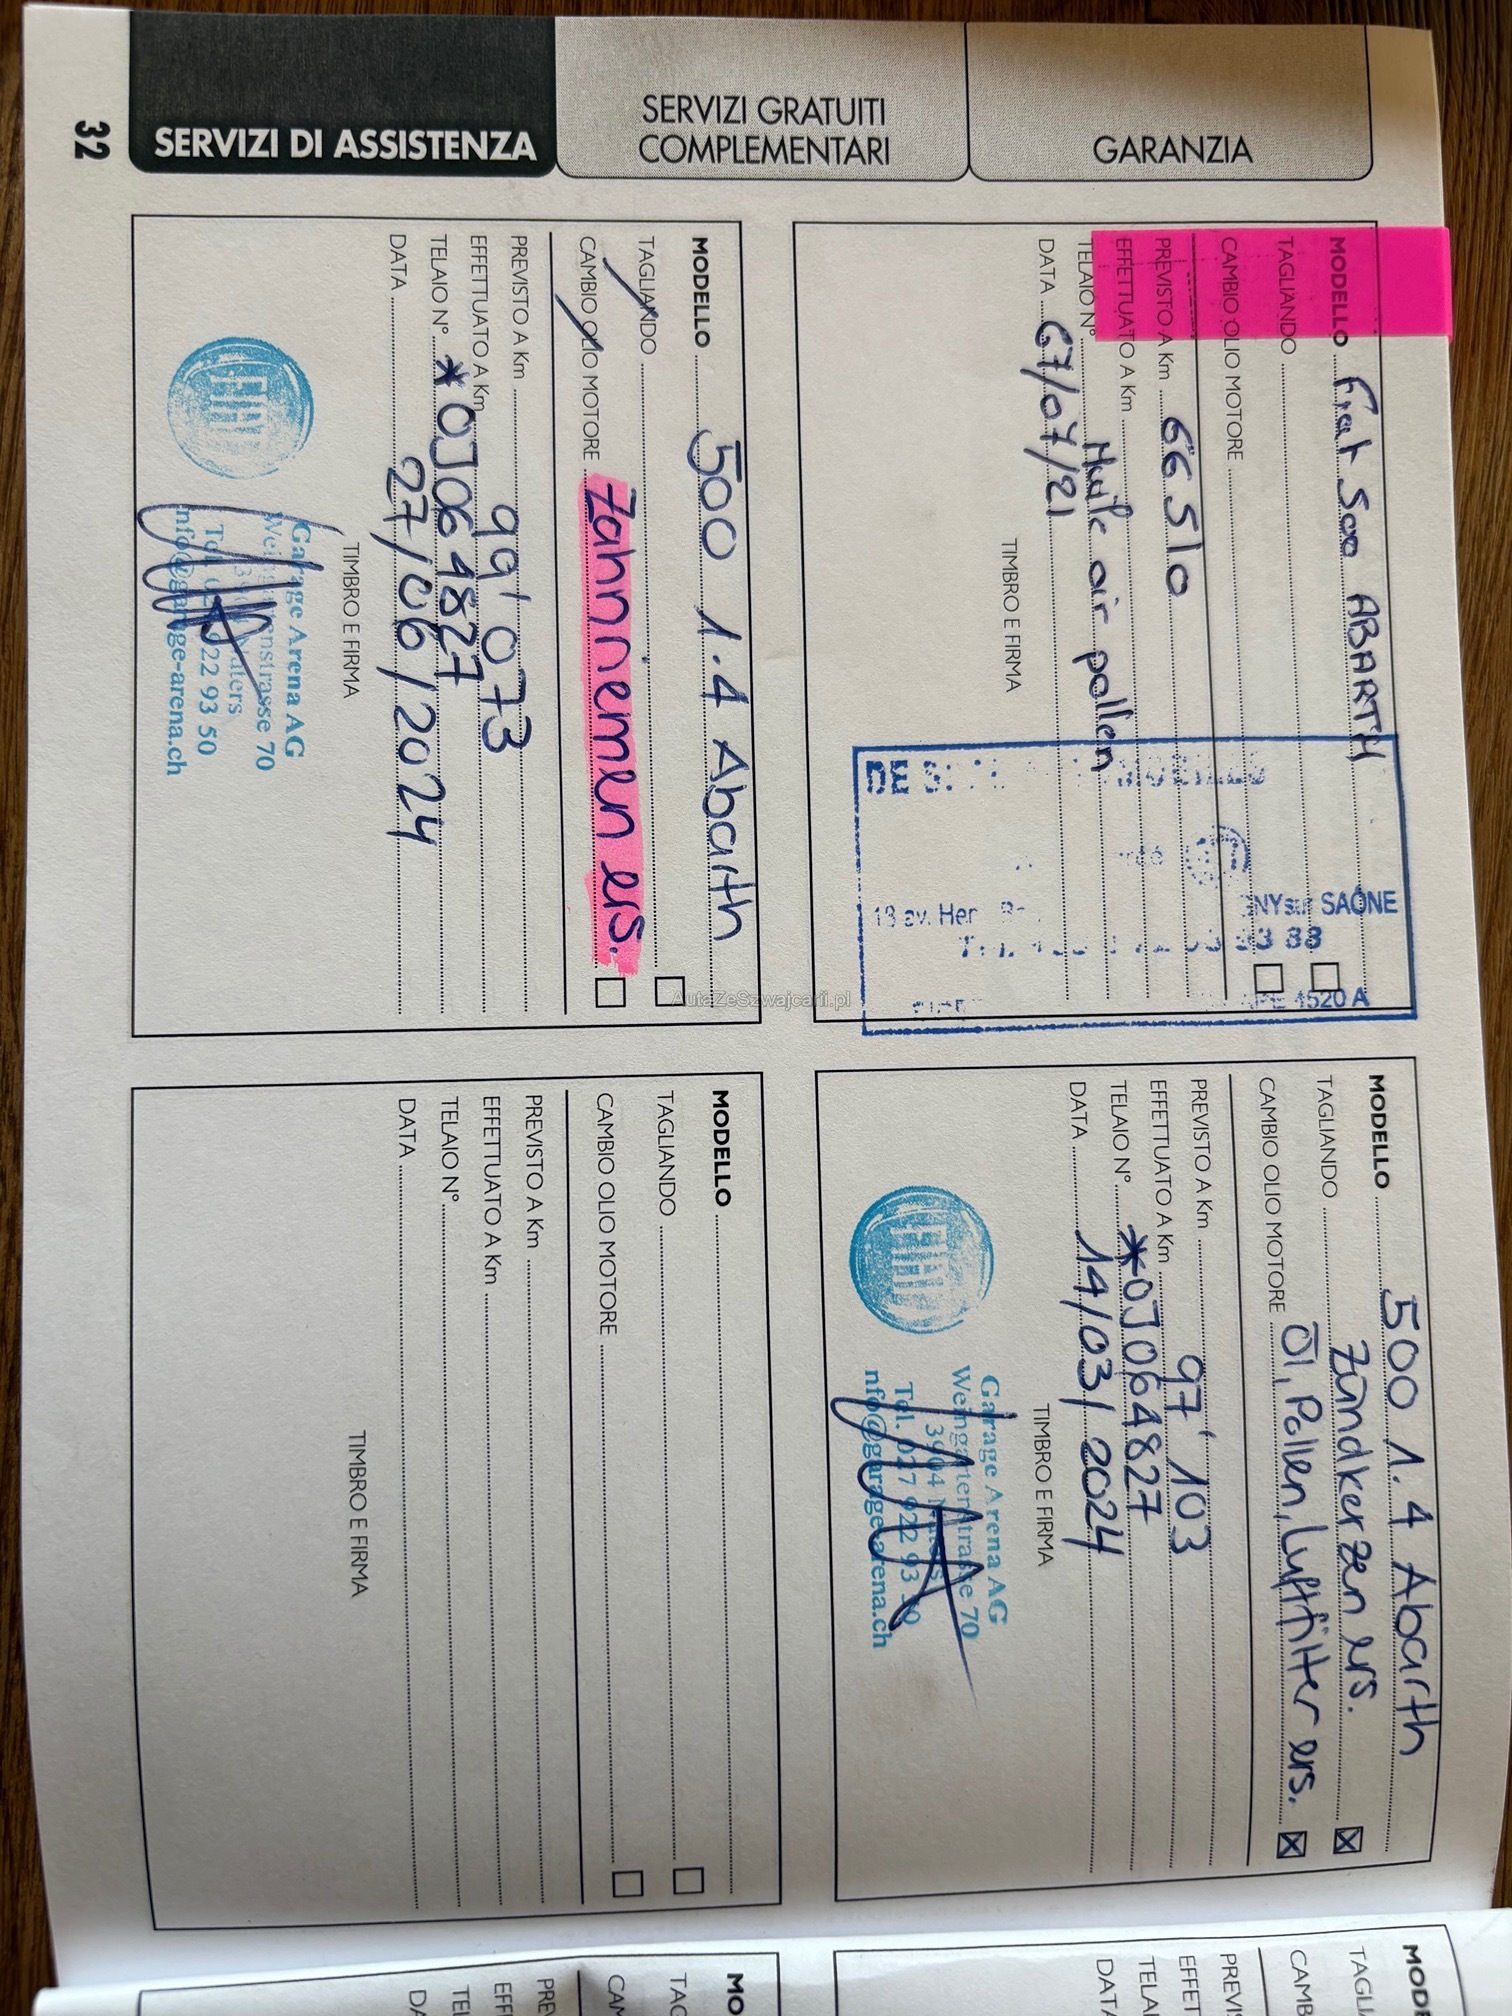 32
SERVIZI DI ASSISTENZA
SERVIZI GRATUITI
COMPLEMENTARI
GARANZIA
MODELLO Fiat 500 ABARTH
TAGLIANDO
CAMBIO OLIO MOTORE
PREVISTO A Km 66 510
EFFETTUATO A Km
TELAIO N° Huile air pollen
DATA 67/07/21
TIMBRO E FIRMA
DE
13 av. Her
SAÔNE
88
4520 A
MODELLO 500 1.4 Abarth
TAGLIANDO Zündkerzen ers.
CAMBIO OLIO MOTORE Öl, Pollen, Luftfilter ers.
PREVISTO A Km
EFFETTUATO A Km 97'103
TELAIO N° *0J064827
DATA 14/03/2024
TIMBRO E FIRMA
FIAT
Garage Arena AG
Weingartenstrasse 70
3904 Naters
Tel. 027 922 93 50
nfo@garage-arena.ch
MODELLO 500 1.4 Abarth
TAGLIANDO
CAMBIO OLIO MOTORE Zahnriemen ers.
PREVISTO A Km
EFFETTUATO A Km 99'073
TELAIO N° *0J064827
DATA 27/06/2024
TIMBRO E FIRMA
FIAT
Garage Arena AG
Weingartenstrasse 70
Naters
Tel. 922 93 50
nfo@garage-arena.ch
AutaZeSzwajcarii.pl
MODELLO
TAGLIANDO
CAMBIO OLIO MOTORE
PREVISTO A Km
EFFETTUATO A Km
TELAIO N°
DATA
TIMBRO E FIRMA
MODE
TAGLI
CAMB
PREVI
EFFET
TELAI
DATA
MO
TAG
CAM
PRE
EFF
TEL
DA